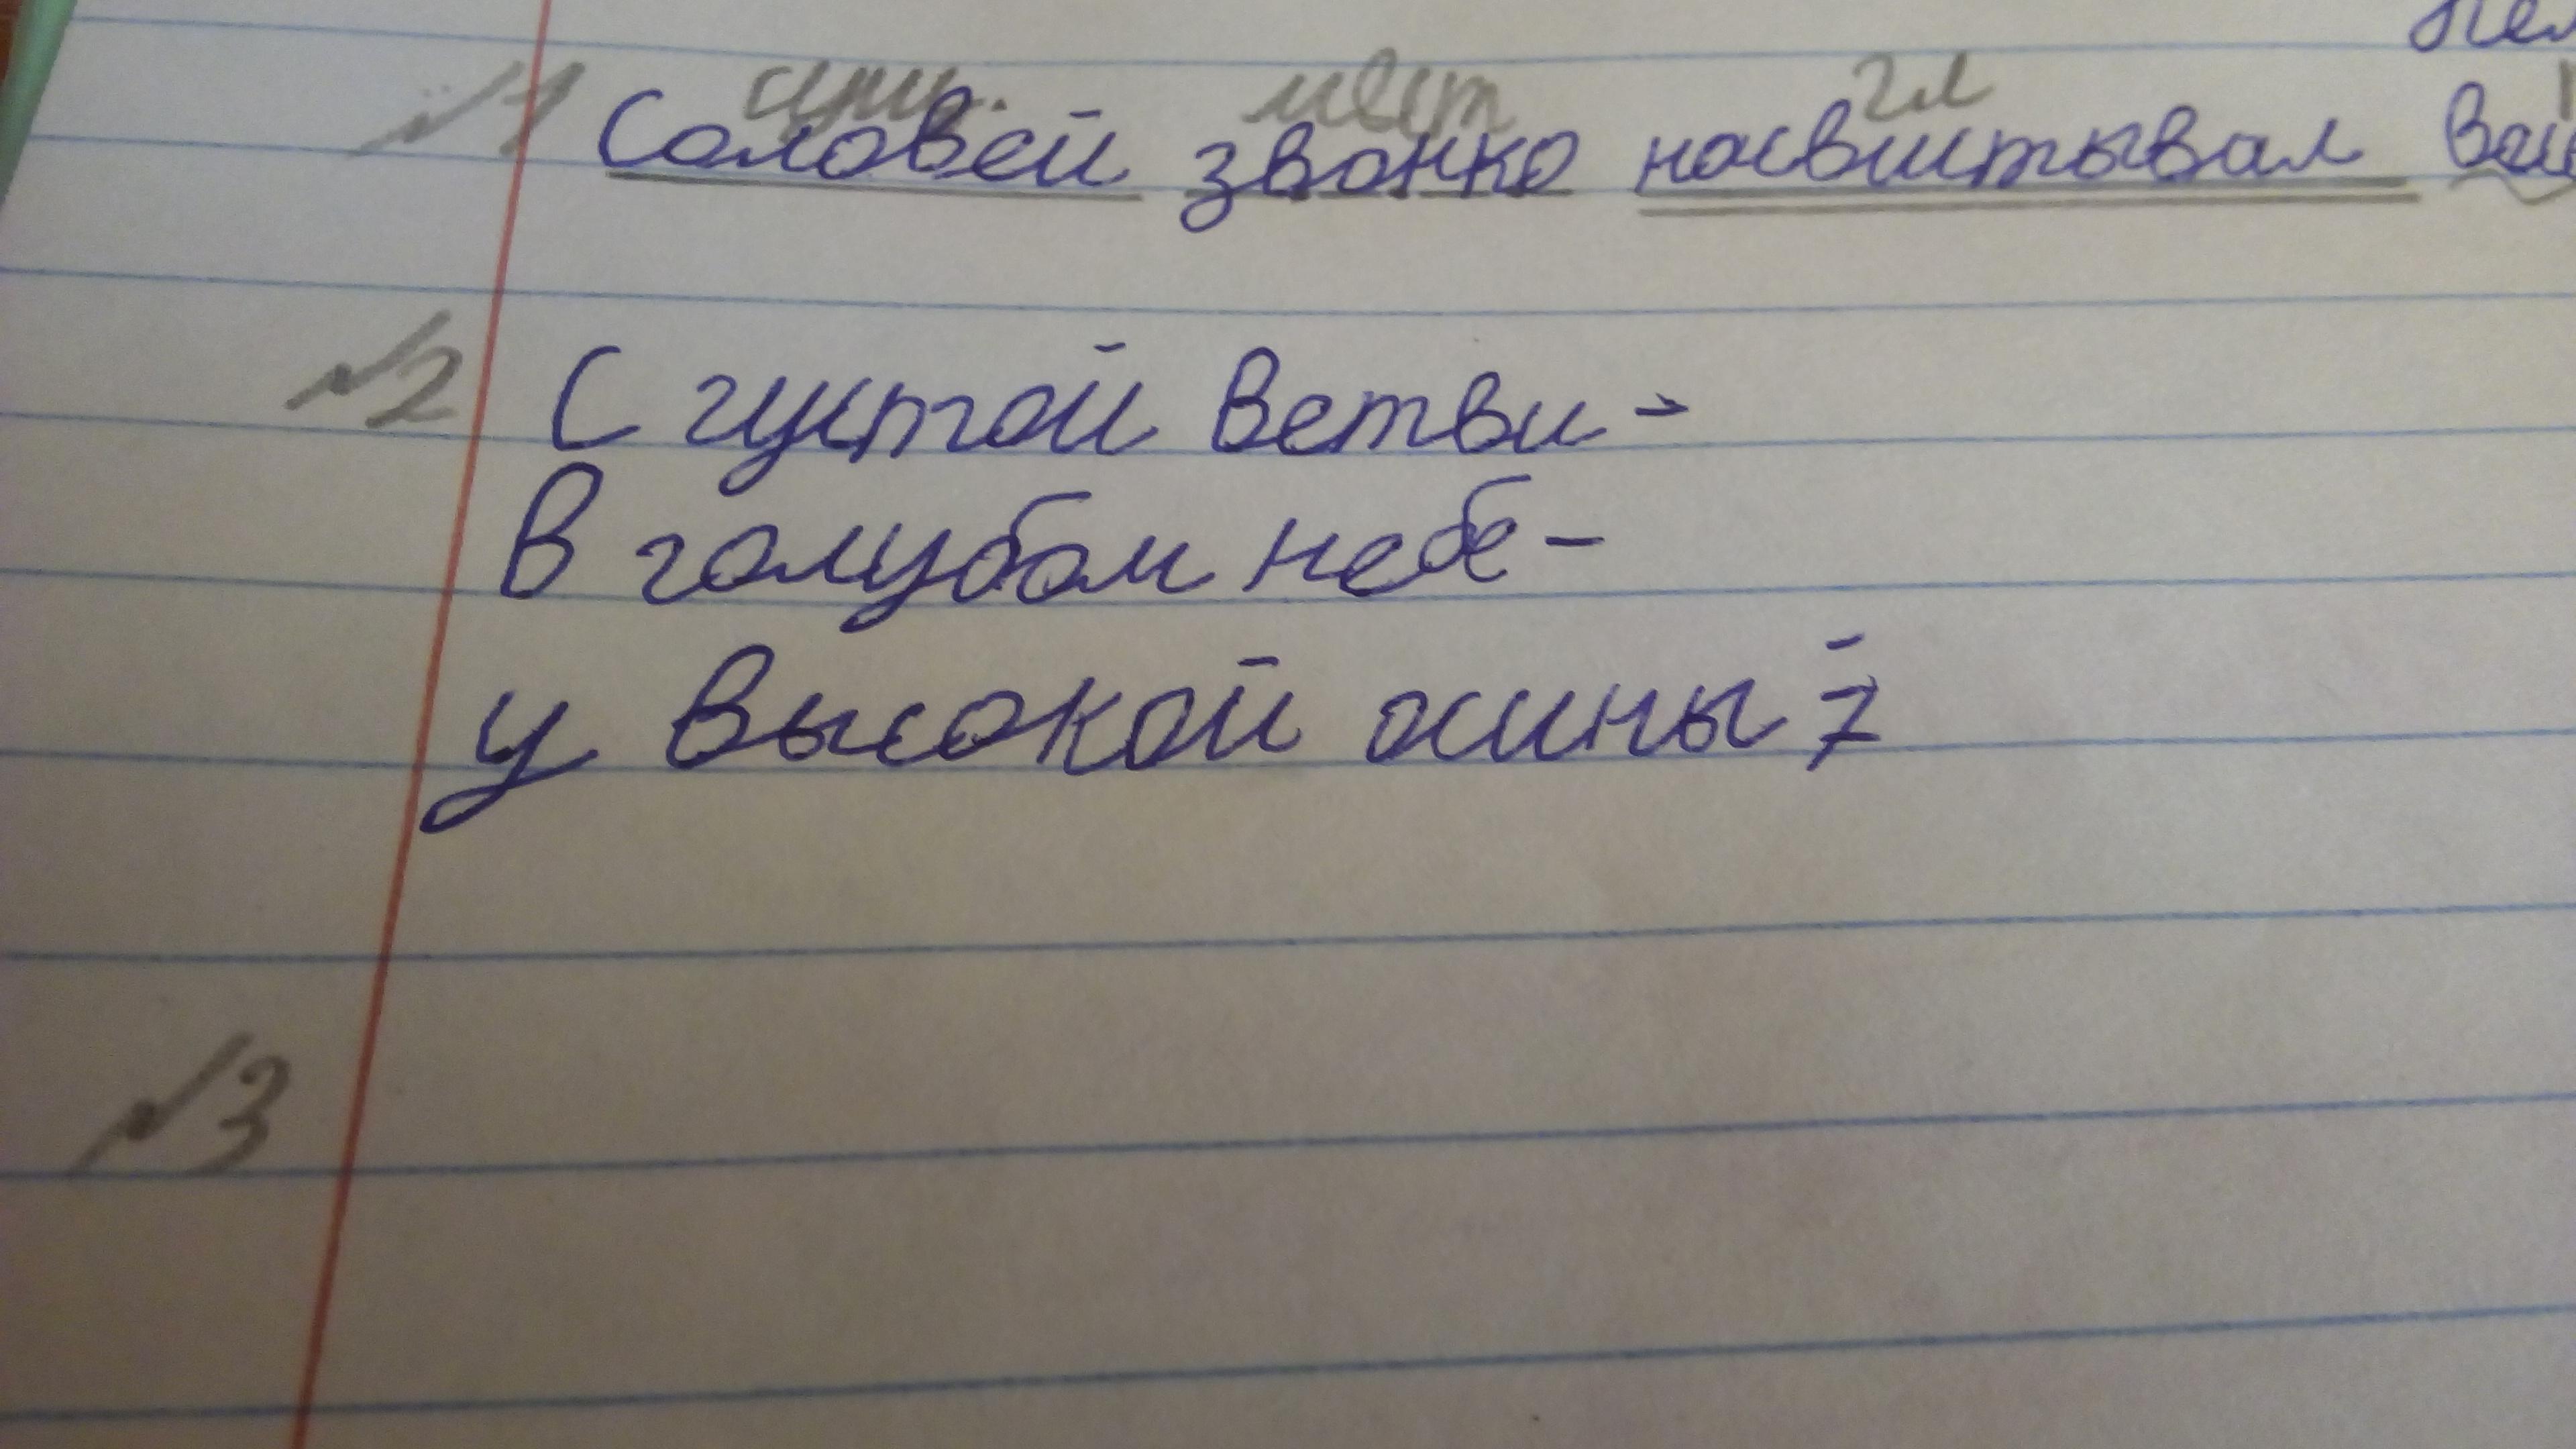 №1 сущ. мест гл
Соловей звонко насвистывал
№2 С густой ветви -
В голубом небе -
у высокой осины -
№3